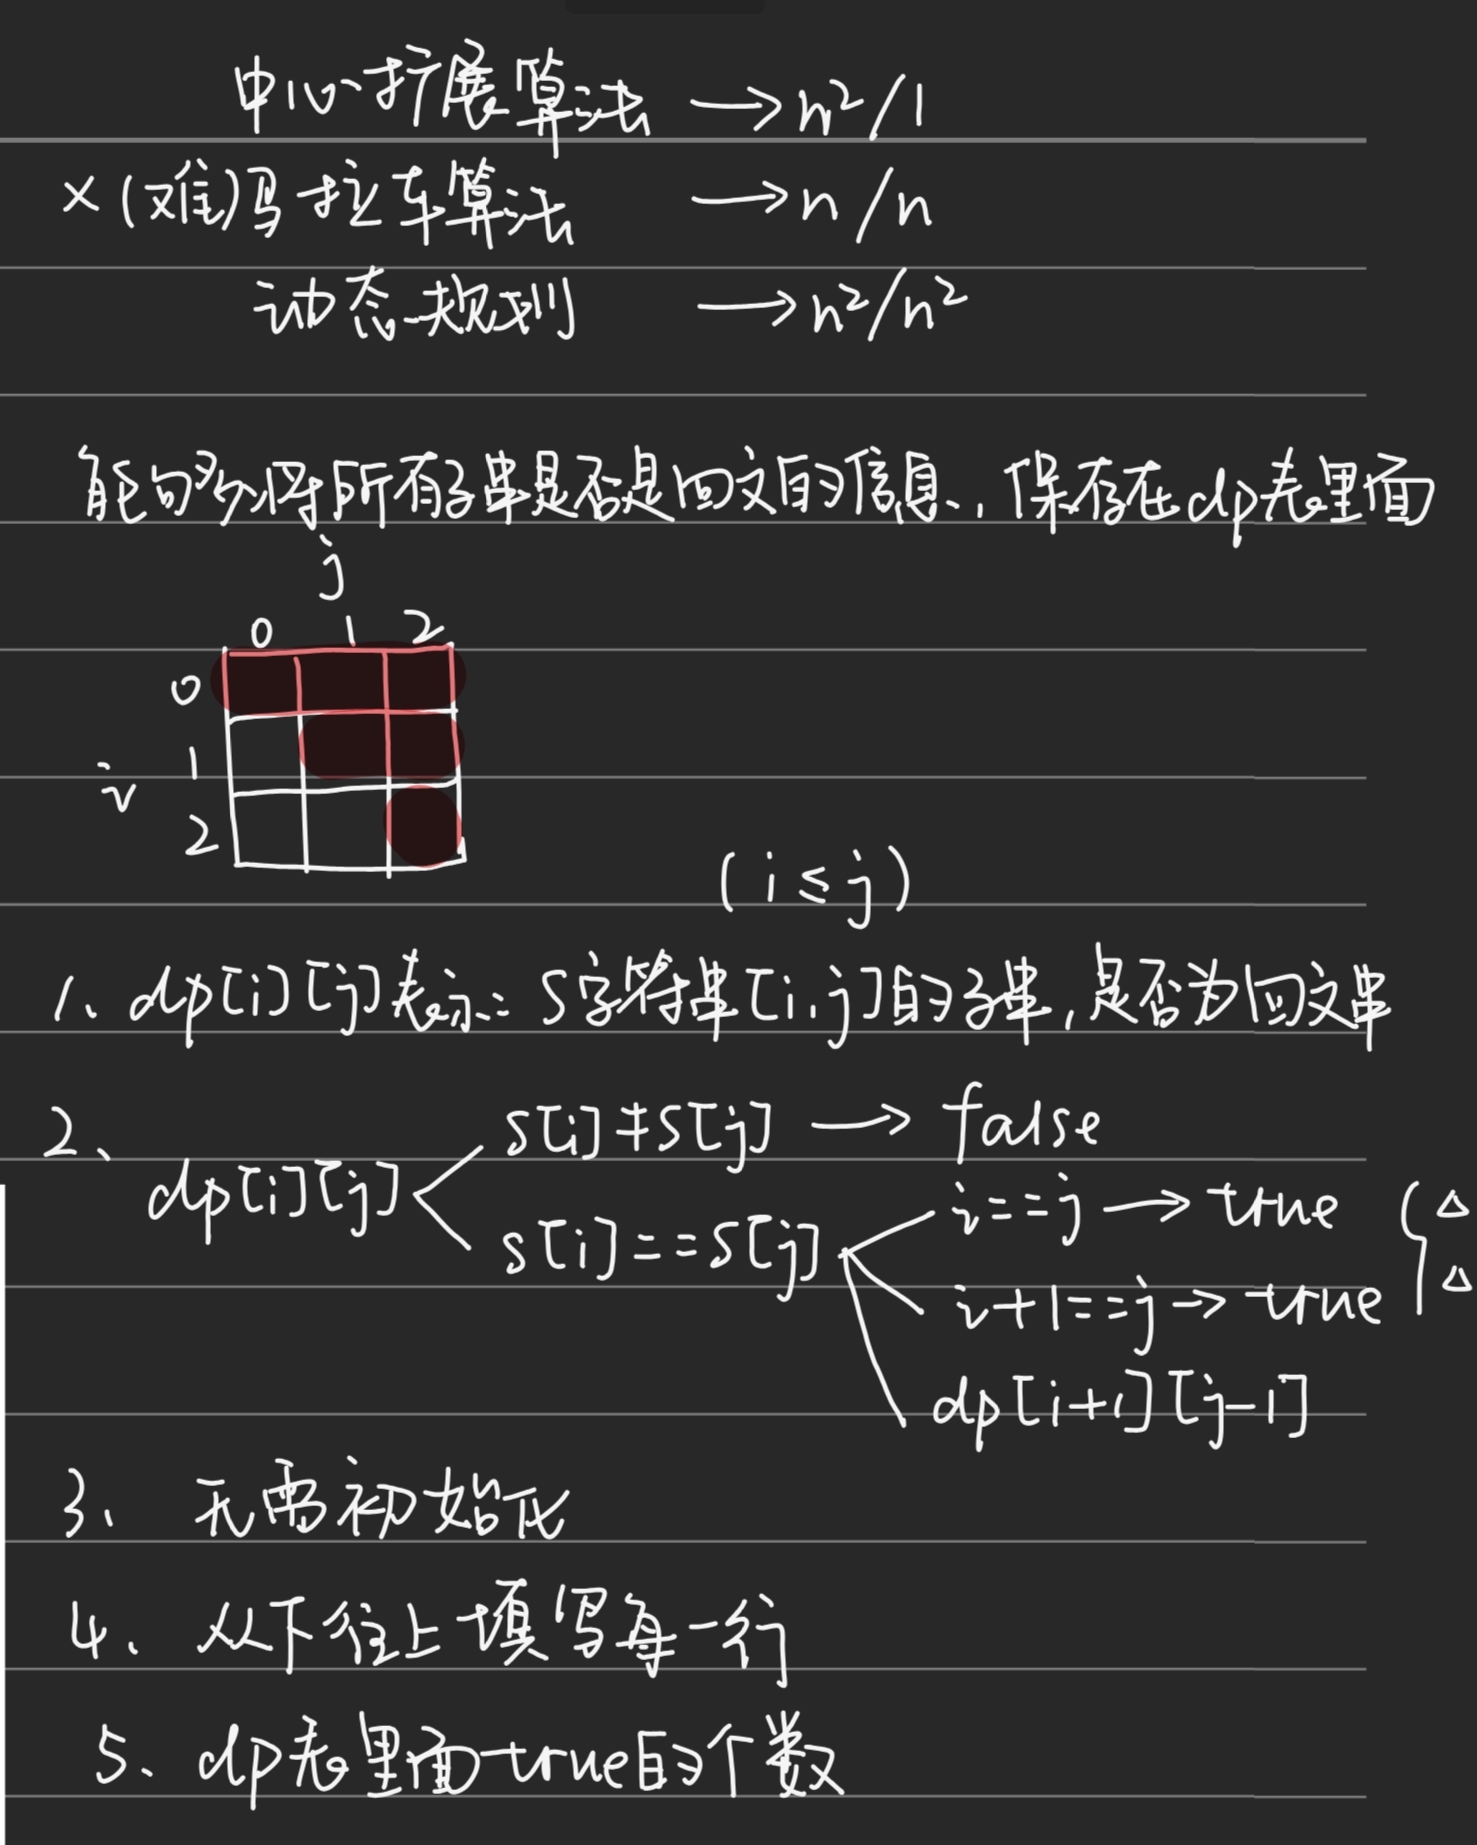 中心扩展算法 → n²/1
×(难)马拉车算法 → n/n
动态规划 → n²/n²
能够将所有子串是否是回文的信息,保存在dp表里面
j
0 1 2
0
1
i
2
(i ≤ j)
1、dp[i][j]表示: s字符串[i,j]的子串,是否为回文串
2、
s[i]≠s[j] → false
dp[i][j]
i==j → true
s[i]==s[j]
i+1==j → true
dp[i+1][j-1]
3、无需初始化
4、从下往上填写每一行
5、dp表里面true的个数